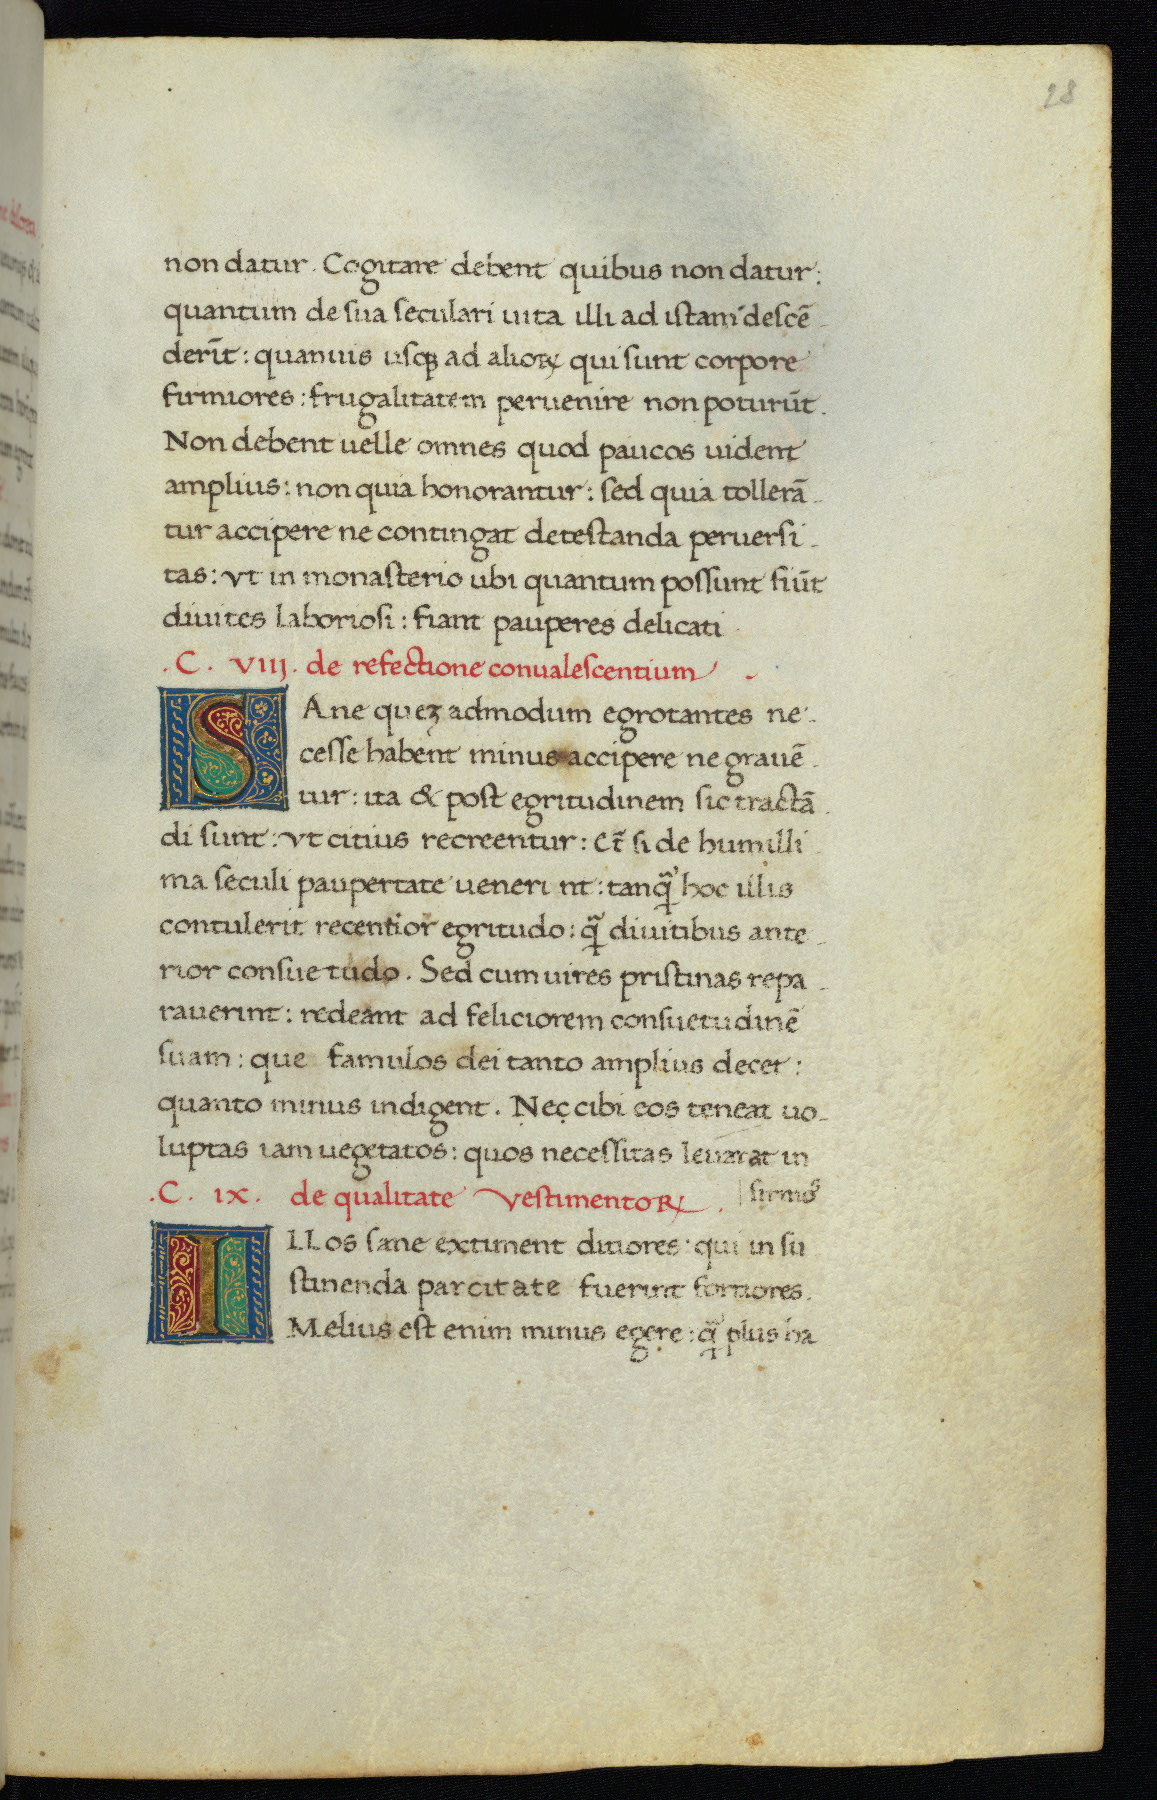 28
non datur. Cogitare debent quibus non datur:
quantum de sua seculari uita illi ad istam descē
derūt: quamuis usqꝫ ad alioꝝ qui sunt corpore
firmiores: frugalitatem peruenire non poturūt.
Non debent uelle omnes quod paucos uident
amplius: non quia honorantur: sed quia tollerā
tur accipere ne contingat detestanda peruersi
tas: ut in monasterio ubi quantum possunt fiūt
diuites laboriosi: fiant pauperes delicati
.C. VIIJ. de refectione conualescentium
SAne queꝫ admodum egrotantes ne
cesse habent minus accipere ne grauē
tur: ita & post egritudinem sic tractā
di sunt: ut citius recreentur: et̄ si de humilli
ma seculi paupertate uenerint: tanq̄ hoc illis
contulerit recentior egritudo: q̄ diuitibus ante
rior consuetudo. Sed cum uires pristinas repa
rauerint: redeant ad feliciorem consuetudinē
suam: que famulos dei tanto amplius decet:
quanto minus indigent. Nec cibi eos teneat uo
luptas iam uegetatos: quos necessitas leuarat in
firmoꝰ
.C. IX. de qualitate vestimentoꝝ.
ILLos sane extiment ditiores: qui in su
stinenda parcitate fuerint fortiores.
Melius est enim minus egere: q̄ plus ha